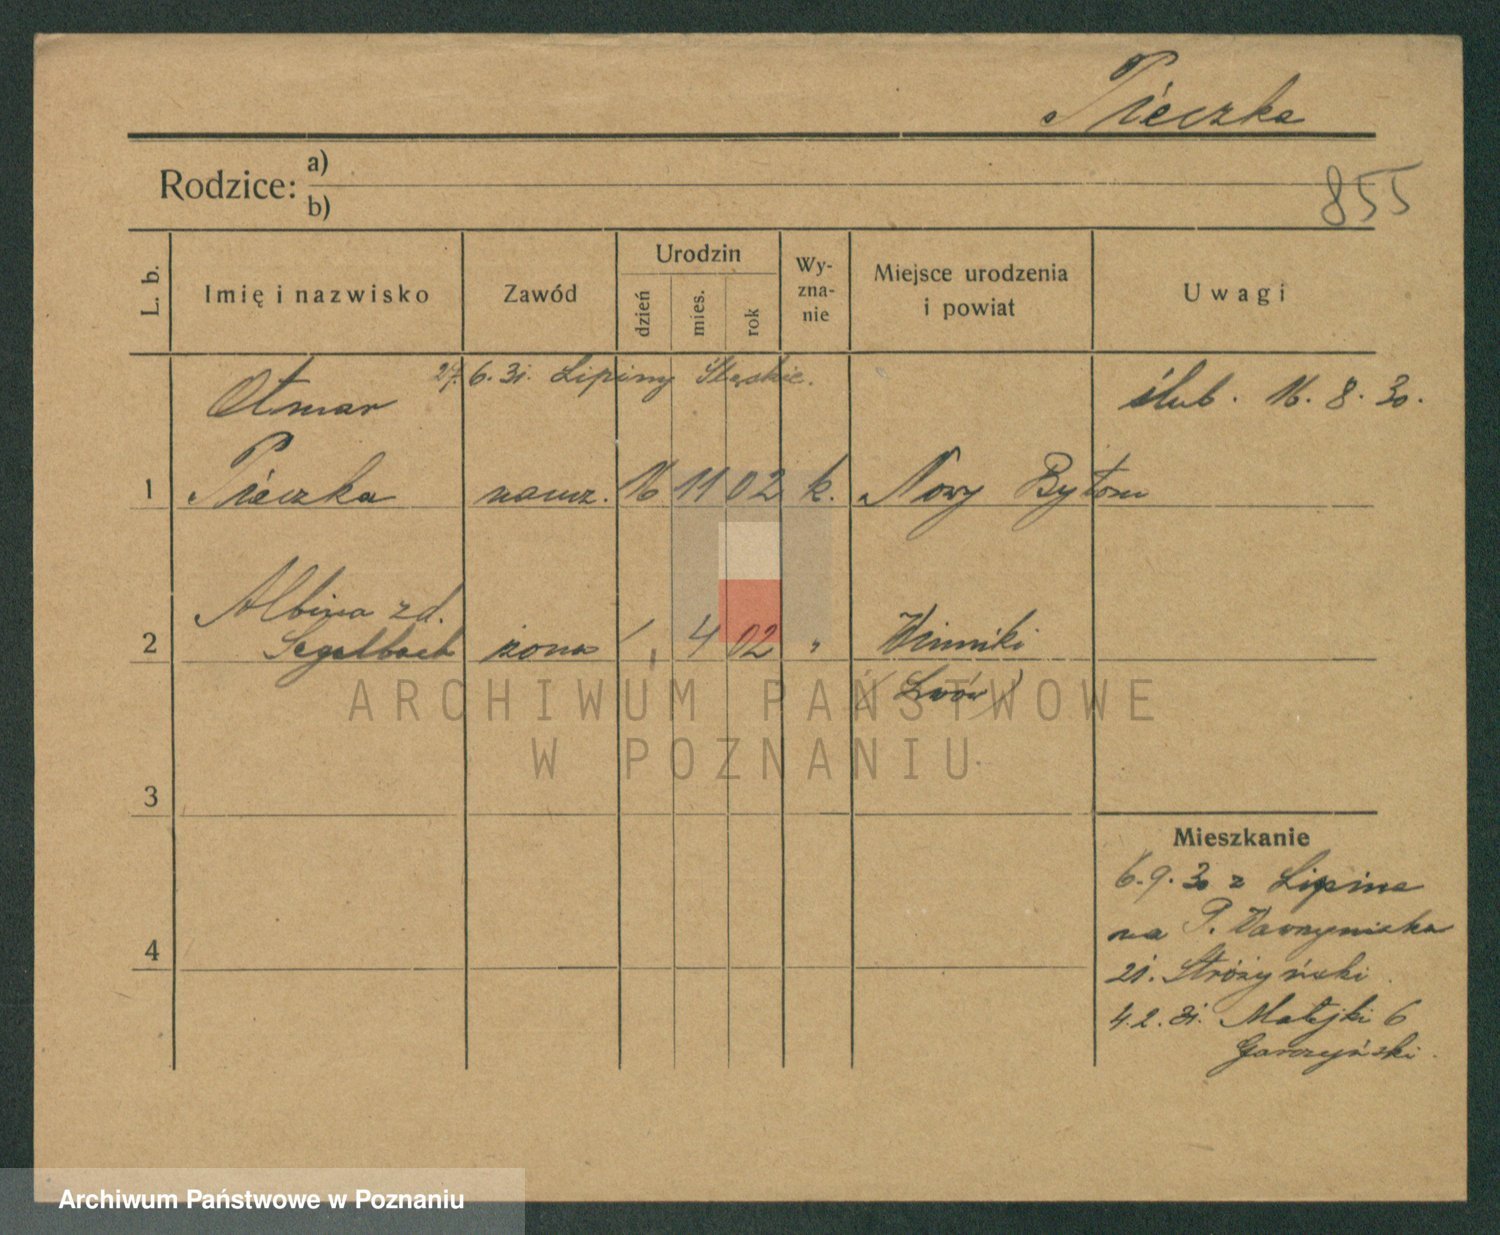 Pieczka
Rodzice: a)
b)
855
L. b.
Imię i nazwisko
Zawód
Urodzin
dzień
mies.
rok
Wy-
zna-
nie
Miejsce urodzenia
i powiat
Uwagi
27.6.31. Lipiny Śląskie.
Otmar
ślub. 16. 8. 30.
1 Pieczka naucz. 16 11 02 k. Nowy Bytom
Albina zd.
2 żona 4 02 " Winniki
(Lwów)
ARCHIWUM PAŃSTWOWE
W POZNANIU
3
Mieszkanie
6.9.30 z Lipine
na P. Wawrzyniaka
21. Stróżyński.
4
4.2.31. Matejki 6
Garczyński.
Archiwum Państwowe w Poznaniu